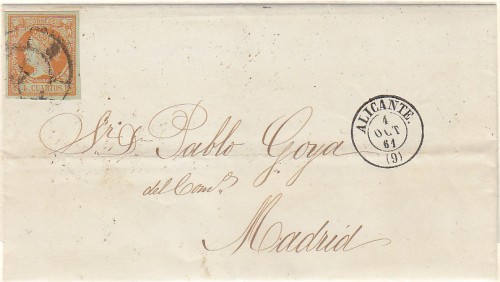 CORREOS
4 CUARTOS
ALICANTE.
1
OCT
61
(9)
Sr. Dn. Pablo Goya
del Comº.
Madrid